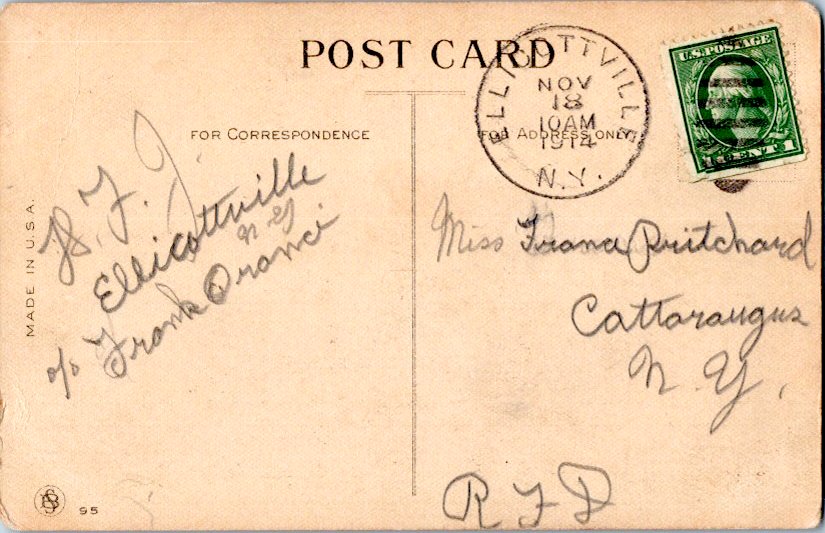 POST CARD
FOR CORRESPONDENCE
FOR ADDRESS ONLY
ELLICOTTVILLE
NOV
18
10AM
1914
N.Y.
U.S. POSTAGE
1 CENT 1
H. F. J.
Ellicottville
N Y
c/o Frank Oranci
Miss Franc Pritchard
Cattaraugus
N. Y,
RFD
MADE IN U.S.A.
95